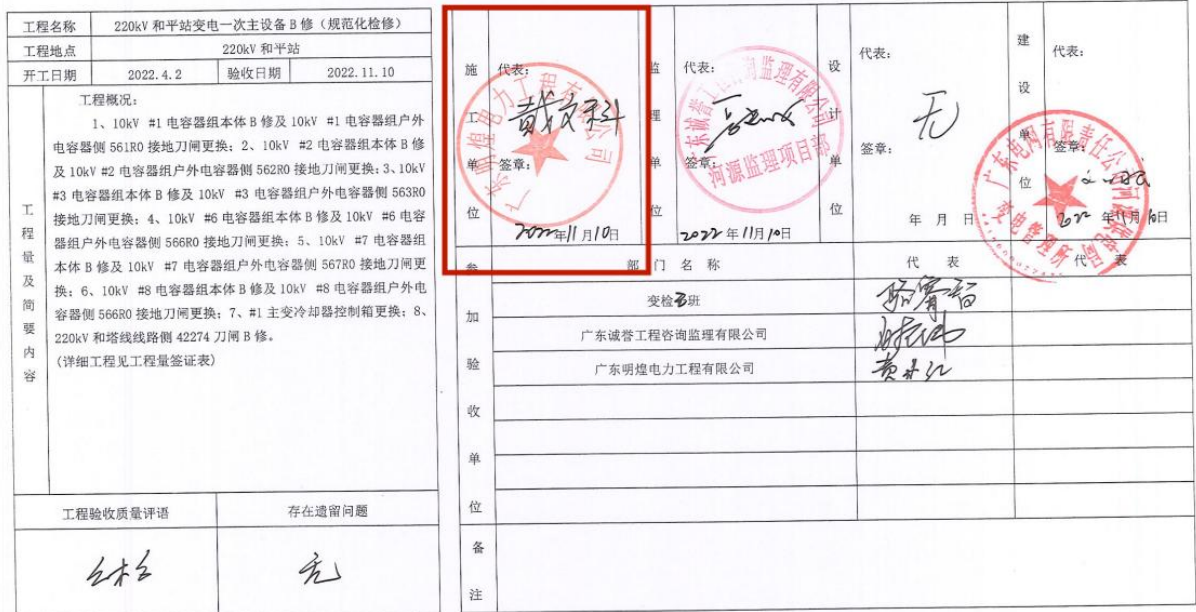 工程名称 220kV 和平站变电一次主设备 B 修（规范化检修）
工程地点 220kV 和平站
开工日期 2022.4.2 验收日期 2022.11.10
工程量及简要内容
工程概况：
1、10kV #1 电容器组本体 B 修及 10kV #1 电容器组户外
电容器侧 561R0 接地刀闸更换；2、10kV #2 电容器组本体 B 修
及 10kV #2 电容器组户外电容器侧 562R0 接地刀闸更换；3、10kV
#3 电容器组本体 B 修及 10kV #3 电容器组户外电容器侧 563R0
接地刀闸更换；4、10kV #6 电容器组本体 B 修及 10kV #6 电容
器组户外电容器侧 566R0 接地刀闸更换；5、10kV #7 电容器组
本体 B 修及 10kV #7 电容器组户外电容器侧 567R0 接地刀闸更
换；6、10kV #8 电容器组本体 B 修及 10kV #8 电容器组户外电
容器侧 566R0 接地刀闸更换；7、#1 主变冷却器控制箱更换；8、
220kV 和塔线线路侧 42274 刀闸 B 修。
（详细工程见工程量签证表）
工程验收质量评语 存在遗留问题
无
施工单位
代表：
签章：
广东明煌电力工程有限公司
2022年11月10日
监理单位
代表：
签章：
广东诚誉工程咨询监理有限公司
河源监理项目部
2022年11月10日
设计单位
代表：
无
签章：
年 月 日
建设单位
代表：
签章：
广东电网有限责任公司河源供电局
变电管理所
2022年11月10日
参加验收单位
部 门 名 称 代 表 代 表
变检班
广东诚誉工程咨询监理有限公司
广东明煌电力工程有限公司
备注